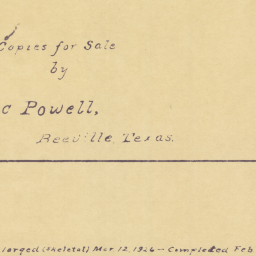 Copies for Sale
by
c Powell,
Beeville, Texas.
larged (skeletal) Mar. 12, 1926 — Completed Feb